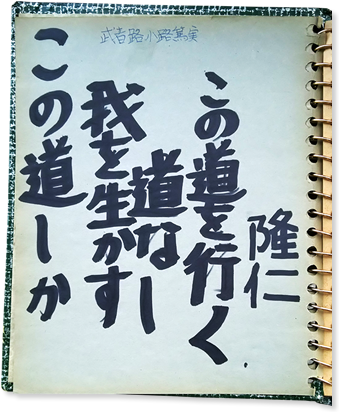 武者路小路篤実
この道しか
我を生かす
道なし
この道を行く
隆仁